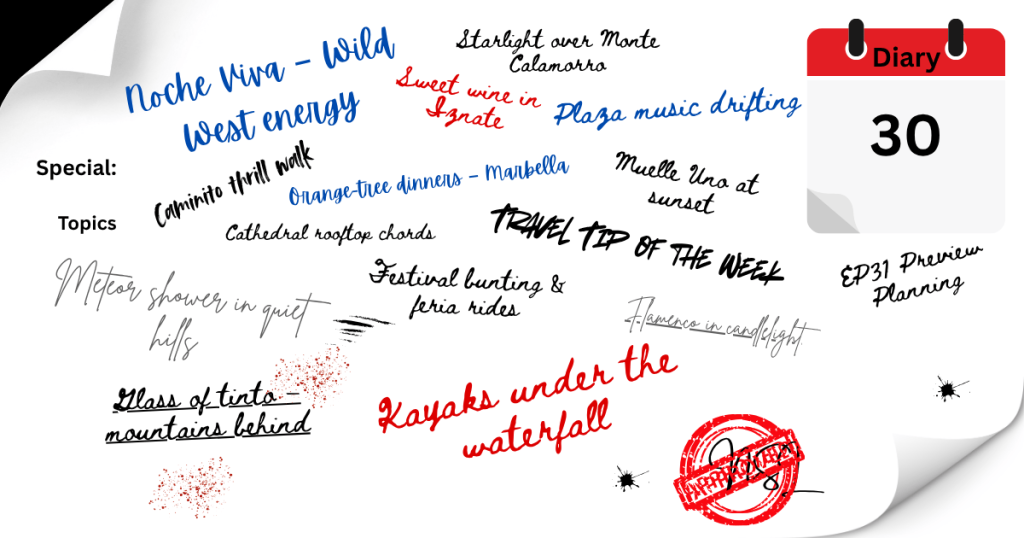 Noche Viva – Wild
West energy
Starlight over Monte
Calamorro
Sweet wine in
Iznate
Plaza music drifting
Diary
30
Special:
Caminito thrill walk
Orange-tree dinners – Marbella
Muelle Uno at
sunset
Topics
Cathedral rooftop chords
TRAVEL TIP OF THE WEEK
EP31 Preview
Planning
Meteor shower in quiet
hills
Festival bunting &
feria rides
Flamenco in candlelight
Glass of tinto –
mountains behind
Kayaks under the
waterfall